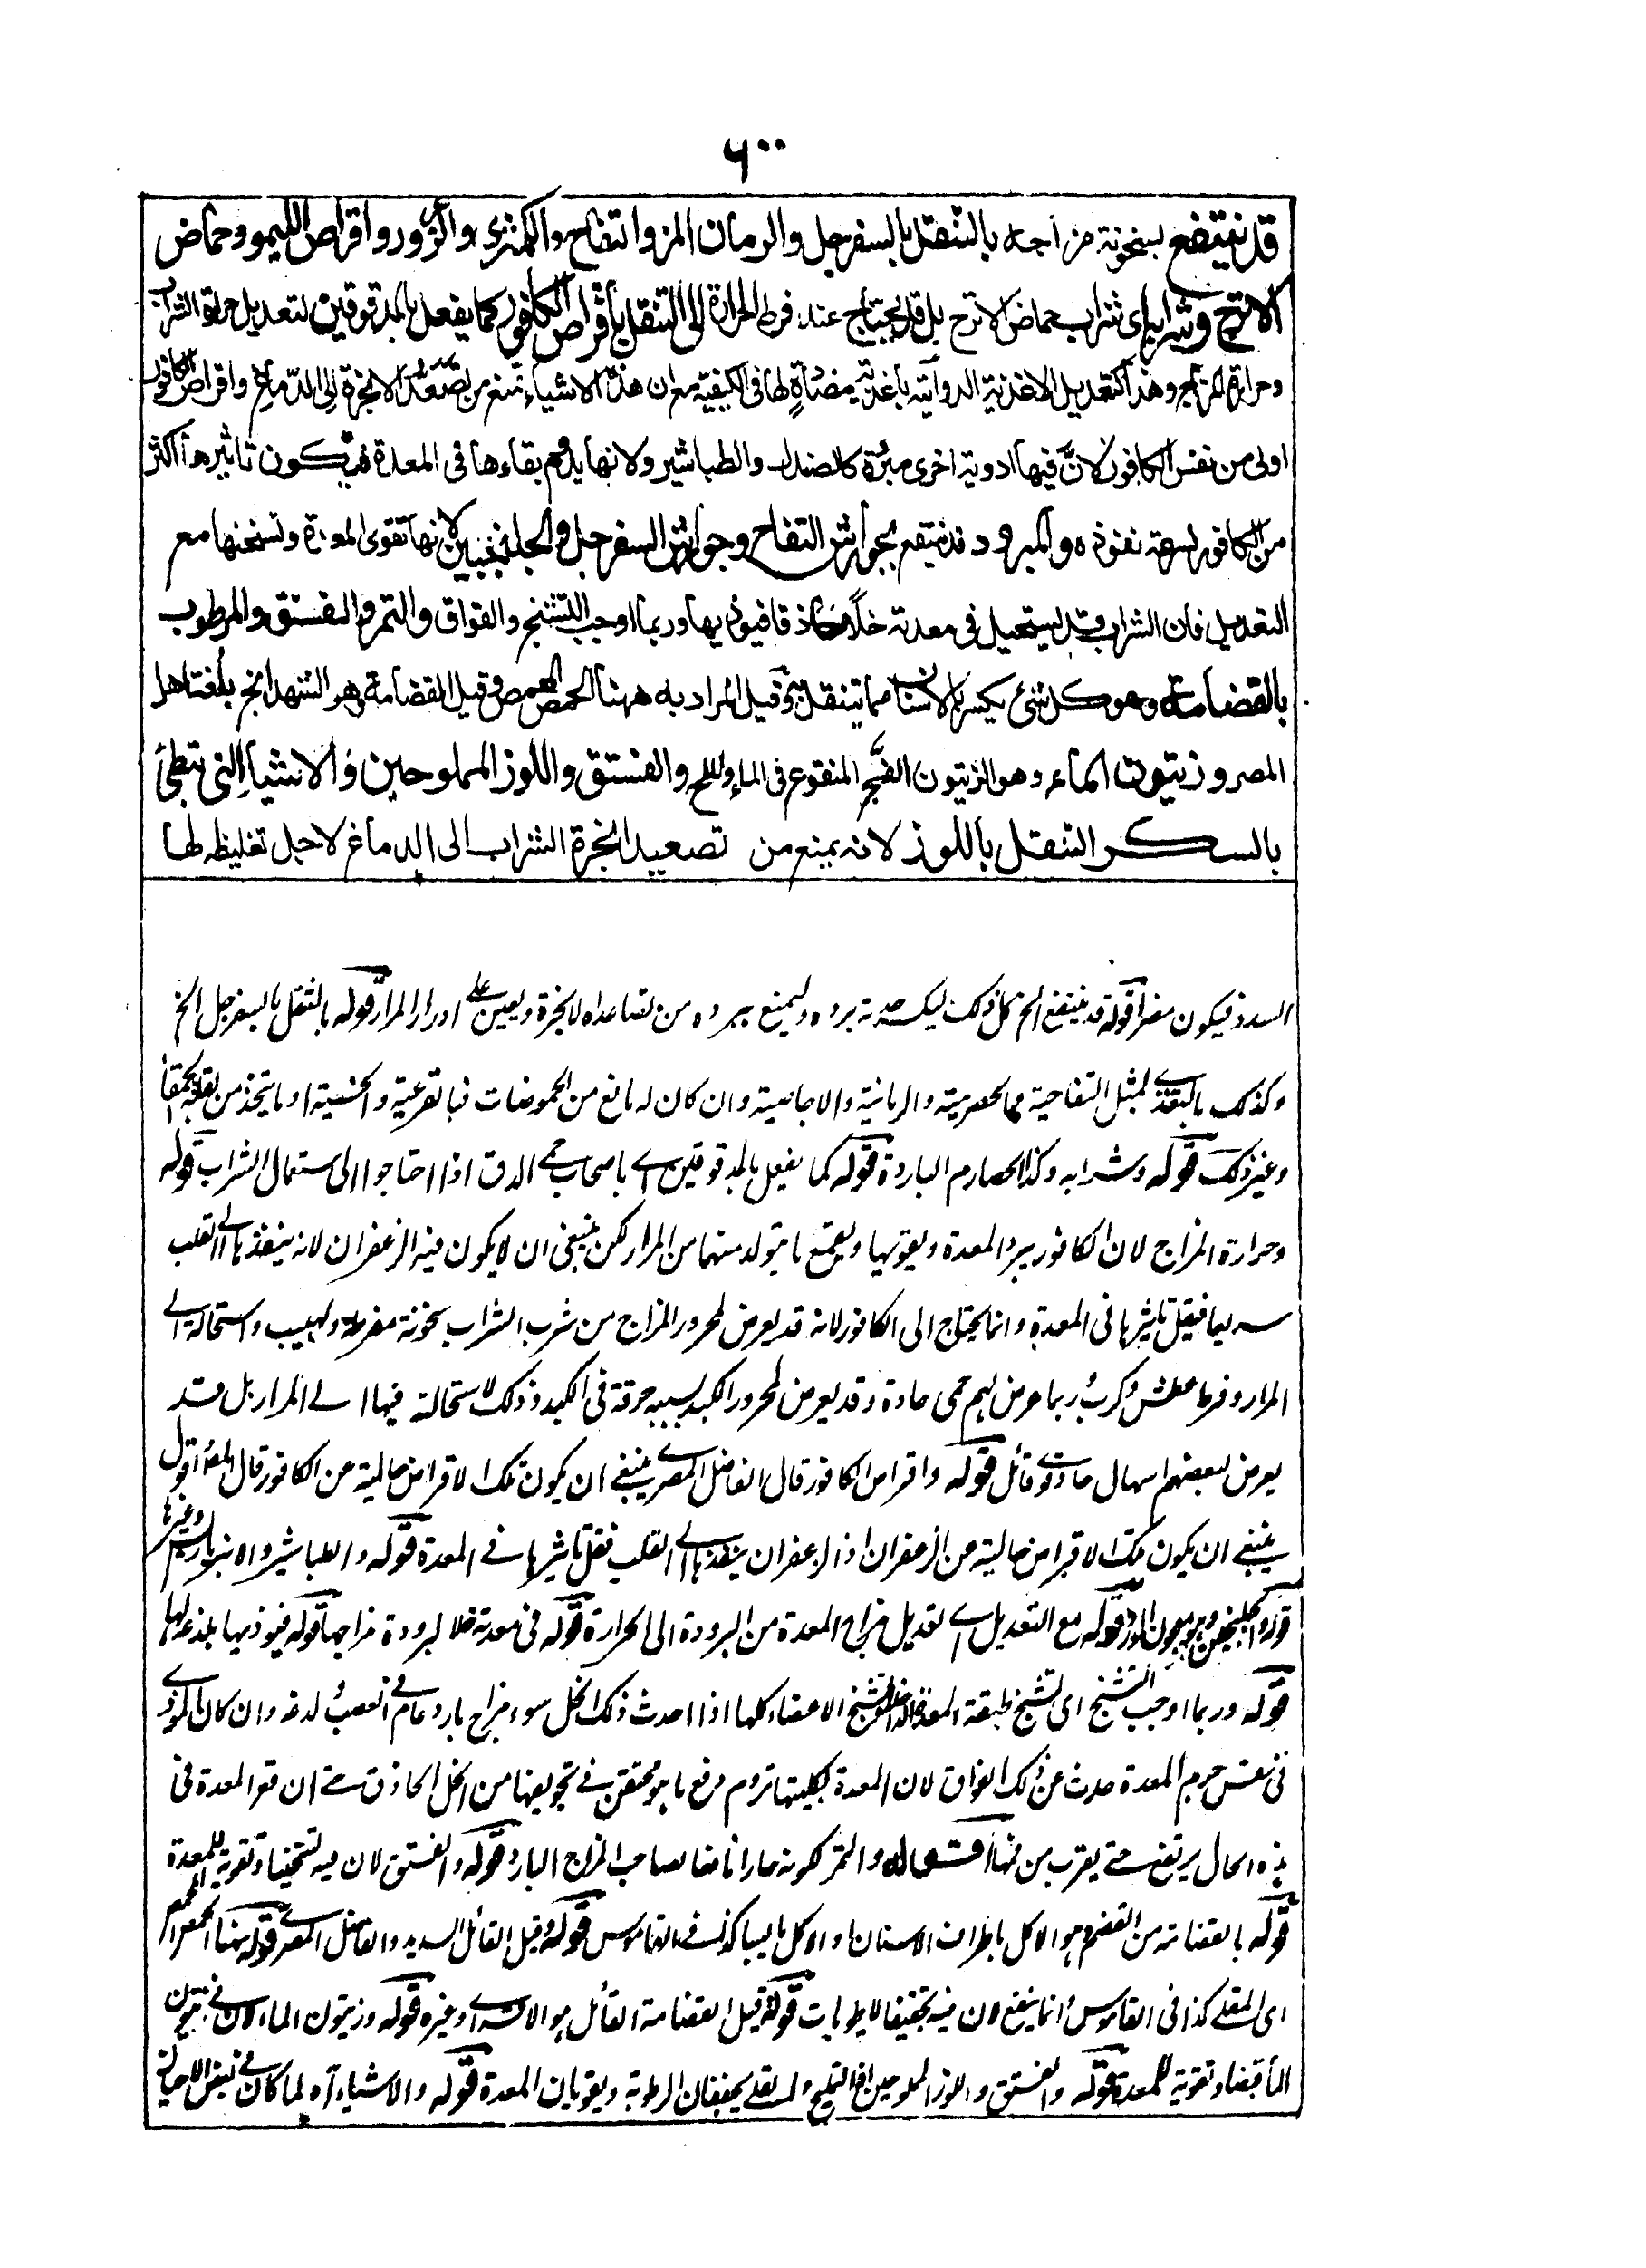 ٦٠٠
قد ينتفع بسخونة مزاجه بالتنقل بالسفرجل والرمان المز والتفاح والكمثرى والزعرور واقراص الليمو وحماض
الاترج وشرابه اى شراب حماض الاترج بل قد يحتاج عند فرط الحرارة الى التنقل باقراص الكافور كما يفعل بالمدقوقين لتعديل حرارة الشراب
وحرارة المزاج وهذا كتعديل الاغذية الدوائية باغذية مضادة لها فى الكيفية مع ان هذه الاشياء تمنع من تصعد الابخرة الى الدماغ واقراص الكافور
اولى من نفس الكافور لان فيها ادوية اخرى مبردة كالصندل والطباشير ولانها يدوم بقاءها فى المعدة فيكون تاثيرها اكثر
من الكافور لسرعة نفوذه والمبرود قد ينتفع بجوارش التفاح وجوارش السفرجل والجلنجبين لانها تقوى المعدة وتسخنها مع
التعديل فان الشراب قد يستحيل فى معدته خلا حاذقا فيوذيها وربما اوجب التشنج والفواق والتمر والفستق والمرطوب
بالقضامة وهو كل شئ يكسر بالاسنان مما يتنقل به وقيل المراد به ههنا الحمص المحمص وقيل القضامة هو الشهدانج بلغة اهل
المصر وزيتون الماء وهو الزيتون الفج المنقوع فى الماء والملح والفستق واللوز المملوحين والاشياء التى تبطئ
بالسكر التنقل باللوز لانه يمنع من تصعيد ابخرة الشراب الى الدماغ لاجل تغليظه لها
السدد فيكون مضرا قوله قد ينتفع الخ كل ذلك ليكسر حدته برده وليمنع ببرده من تصاعد الابخرة ويعين على ادرار المرار قوله بالتنقل بالسفرجل الخ
وكذلك بالتغذى بمثل التفاحية والحصرمية والرمانية والاجاصية وان كان له مانع من الحموضات فبالقرعية والخسية او ما يتخذ من بقلة الحمقاء
وغير ذلك قوله وشرابه وكذا الحصارم الباردة قوله كما يفعل بالمدقوقين اى باصحاب حمى الدق اذا احتاجوا الى استعمال الشراب قوله
وحرارة المزاج لان الكافور يبرد المعدة ويقويها ويقمع ما يتولد منهما من المرار لكن ينبغى ان لا يكون فيه الزعفران لانه ينفذها الى القلب
سريعا فيقل تاثيرها فى المعدة وانما يحتاج الى الكافور لانه قد يعرض لمحرور المزاج من شرب الشراب سخونة مفرطة ولهيب واستحالة الى
المرار وفرط عطش وكرب وربما عرض لهم حمى حادة وقد يعرض لمحرور الكبد بسببه حرقة فى الكبد وذلك لاستحالة فيها الى المرار بل قد
يعرض لبعضهم اسهال حاد قوى قاتل قوله واقراص الكافور قال الفاضل المصرى ينبغى ان يكون تلك الاقراص خالية عن الكافور قال اقول
ينبغى ان يكون تلك الاقراص خالية عن الزعفران اذ الزعفران ينفذها الى القلب فيقل تاثيرها فى المعدة قوله والطباشير والانبرباريس وغيرها
قوله والجلنجبين وهو معجون الورد قوله مع التعديل اى تعديل مزاج المعدة من البرودة الى الحرارة قوله فى معدته خلا لبرودة مزاجها قوله فيوذيها بلذعه لها
قوله وربما اوجب التشنج اى تشنج طبقة المعدة الاعضاء كلها اذا احدث ذلك الخل سوء مزاج بارد عام فى العصب لذعه وان كان الموذى
فى نفس جرم المعدة حدث عن ذلك الفواق لان المعدة بكليتها تروم دفع ما هو محتقن فى تجويفها من الخل الحاذق حتى ان قعر المعدة فى
هذه الحال يرتفع حتى يقرب من فمها قوله والتمر لكونه حارا نافعا لصاحب المزاج البارد قوله والفستق لان فيه تسخينا وتقوية للمعدة
قوله بالقضامة من القضم هو الاكل باطراف الاسنان او الاكل يابسا كذا فى القاموس قوله وقيل القائل السديد والفاضل المصرى قوله ههنا الحمص المحمص
اى المقلى كذا فى القاموس وانما ينفع لان فيه تجفيفا للرطوبات قوله وقيل القضامة القائل هو الآملى وغيره قوله وزيتون الماء لان فى زيتون
الماء قبضا وتقوية للمعدة قوله والفستق واللوز المملوحين اذ التمليح والقلى يجففان الرطوبة ويقويان المعدة قوله والاشياء آه لما كان فى بعض الاحيان